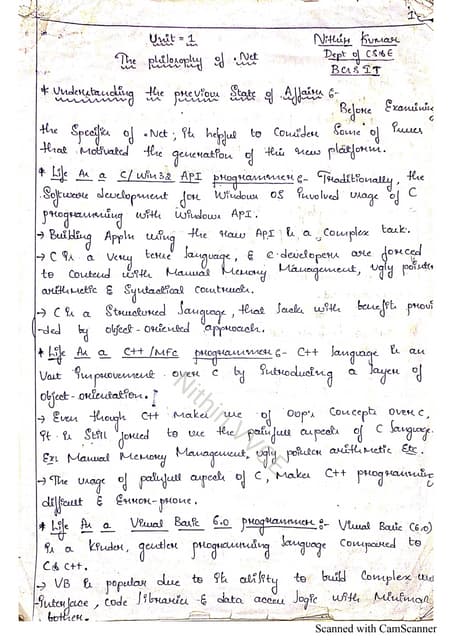 1
Unit = 1
Nithin Kumar
The philosophy of .Net
Dept of CS&E
* Understanding the previous State of Affairs :-
Before Examining
the Specifics of .Net; its helpful to Consider Some of Issues
that Motivated the generation of this new platform.
* Life As a C/Win32 API programmer :- Traditionally, the
Software development for Windows OS involved usage of C
programming with Windows API.
→ Building Appln using the raw API is a complex task.
→ C is a very terse language, & C developers are forced
to Contend with Manual Memory Management, ugly pointer
arithmetic & Syntactical Constructs.
→ C is a Structured language, that lacks with benefit provi
-ded by object-oriented approach.
* Life As a C++/MFC programmer :- C++ language is an
Vast Improvement over C by Introducing a layer of
object-orientation.
→ Even though C++ Makes use of Oop's Concepts over C,
It is Still forced to use the painfull aspects of C language.
Ex: Manual Memory Management, ugly pointer arithmetic Etc.
→ The usage of painfull aspects of C, Makes C++ programming
difficult & Error-prone.
* Life As a Visual Basic 6.0 programmer :- Visual Basic (6.0)
is a kinder, gentler programming language compared to
C & C++.
→ VB is popular due to its ability to build Complex use
-Interface, code libraries & data access logic with Minimal
bother.
Scanned with CamScanner